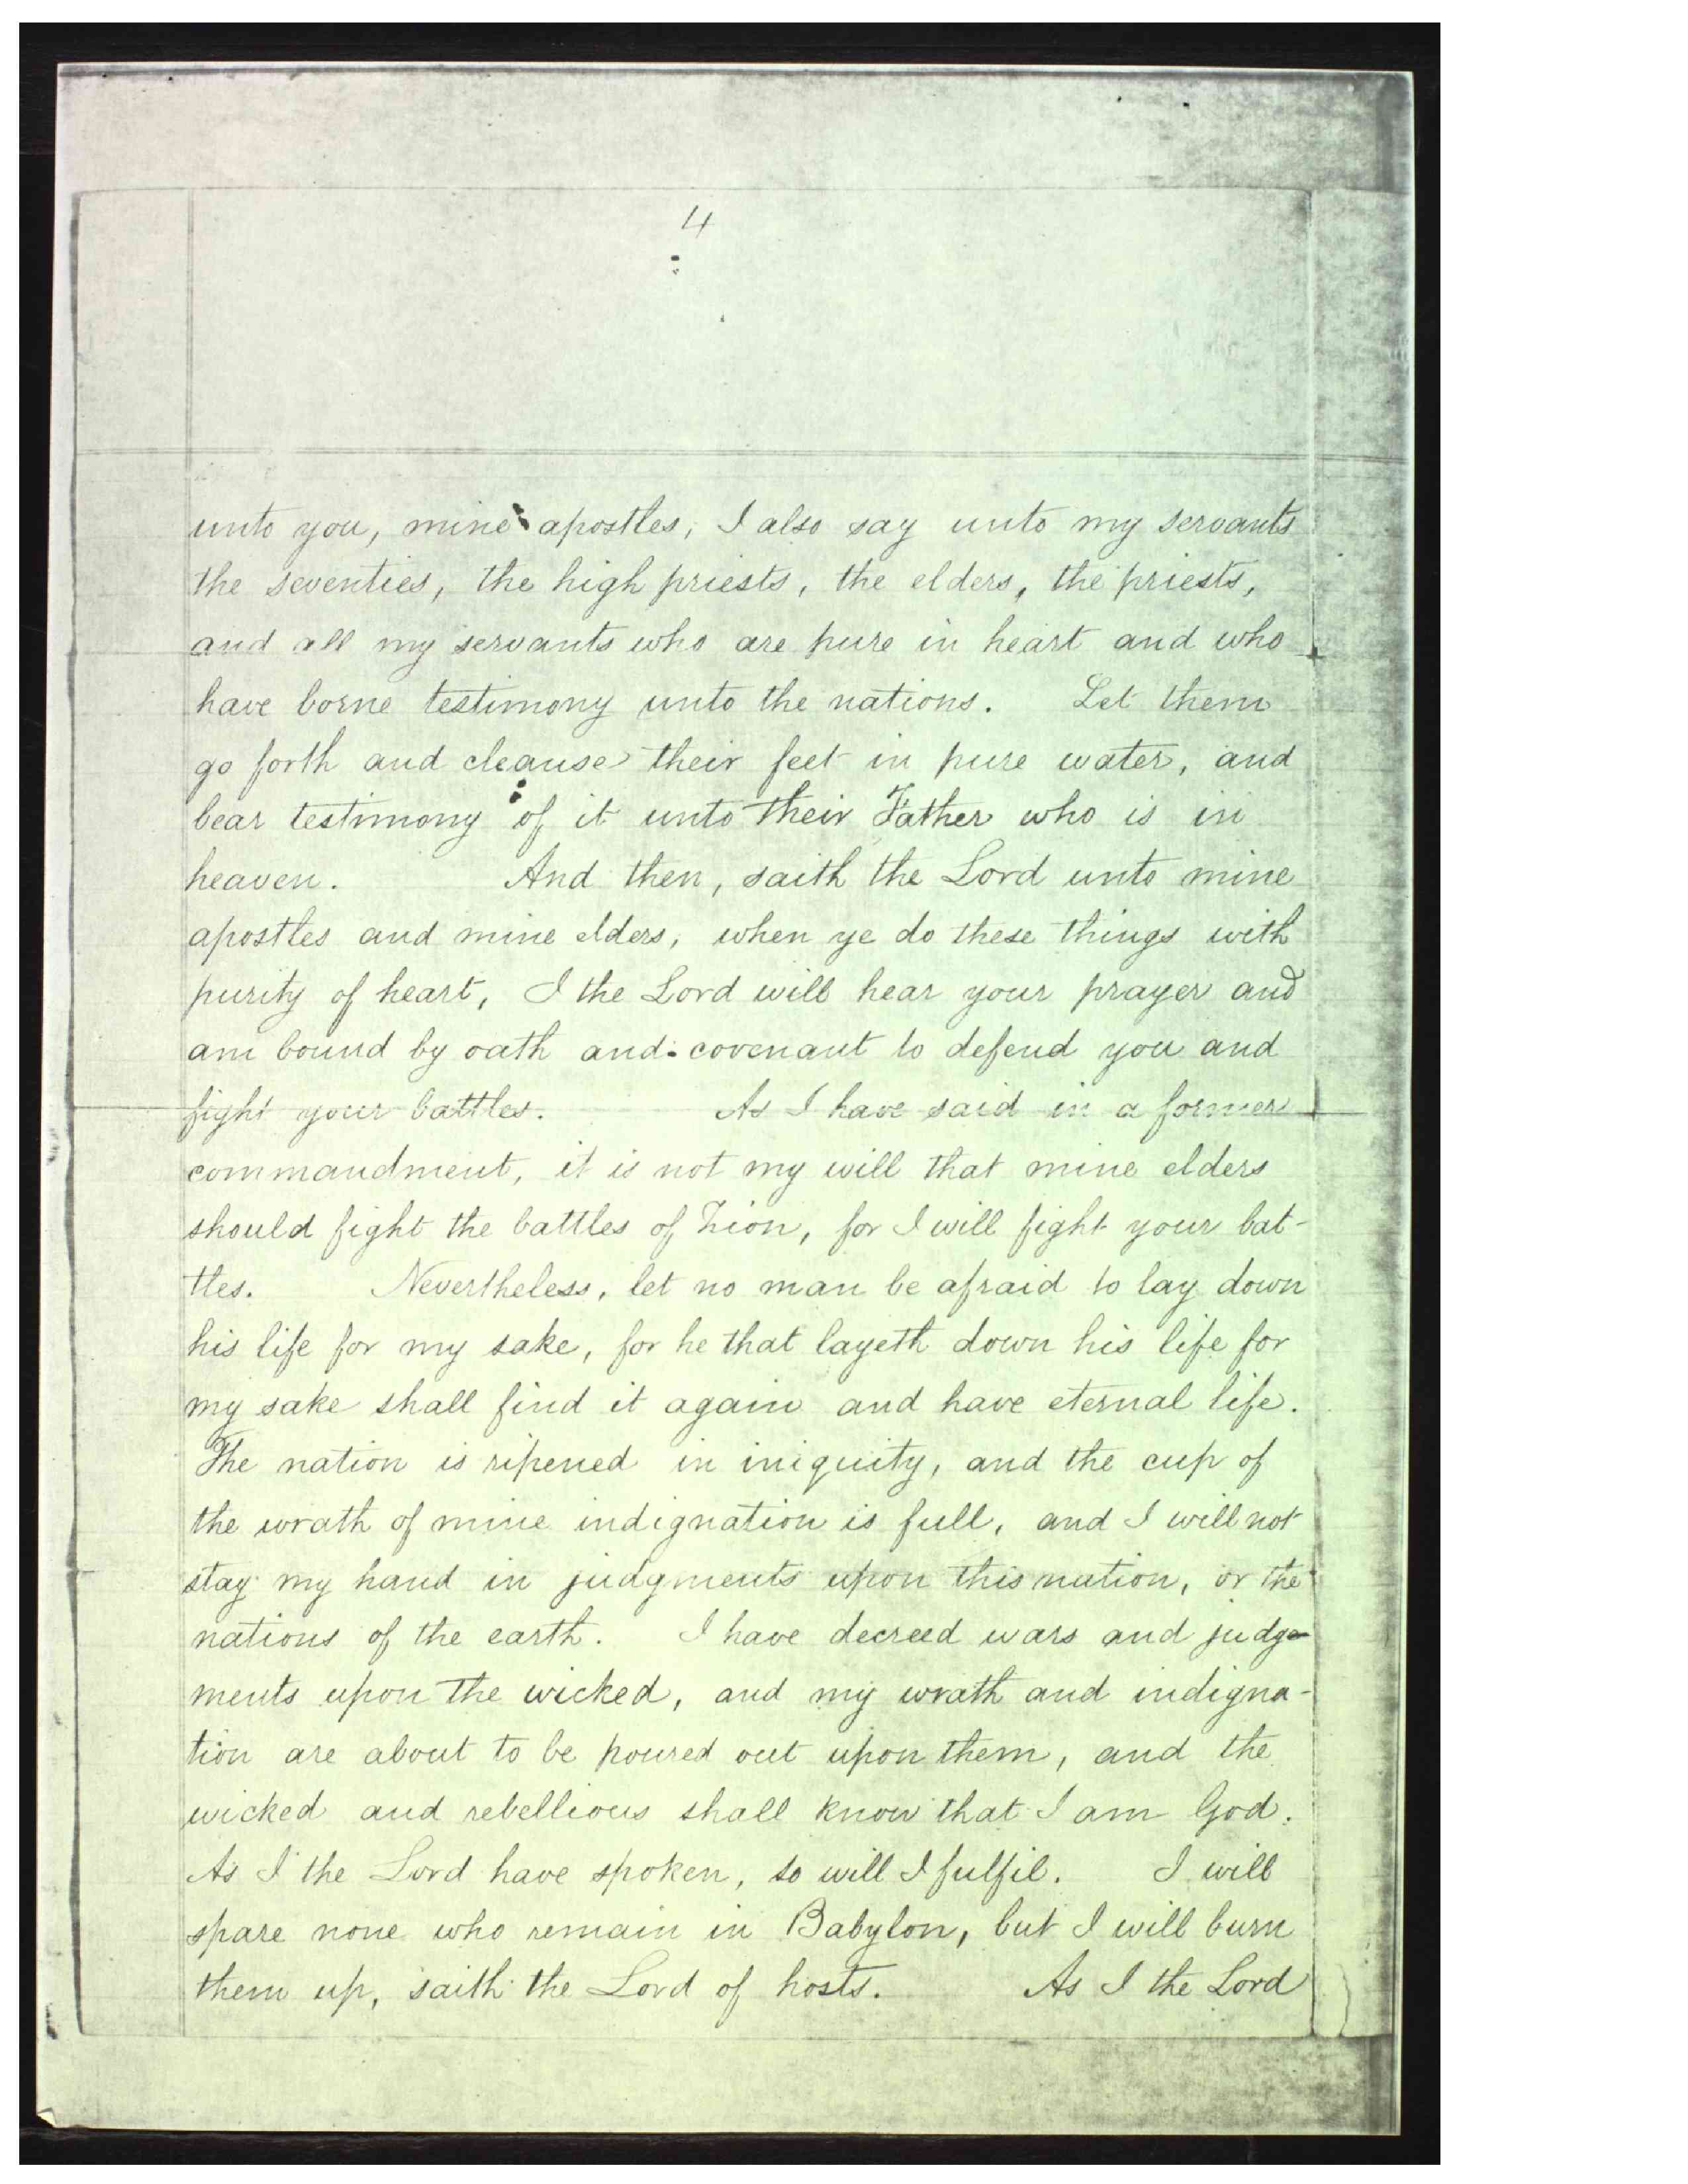 4
unto you, mine apostles, I also say unto my servants
the seventies, the high priests, the elders, the priests,
and all my servants who are pure in heart and who
have borne testimony unto the nations. Let them
go forth and cleanse their feet in pure water, and
bear testimony of it unto their Father who is in
heaven. And then, saith the Lord unto mine
apostles and mine elders, when ye do these things with
purity of heart, I the Lord will hear your prayer and
am bound by oath and covenant to defend you and
fight your battles. As I have said in a former
commandment, it is not my will that mine elders
should fight the battles of Zion, for I will fight your bat-
tles. Nevertheless, let no man be afraid to lay down
his life for my sake, for he that layeth down his life for
my sake shall find it again and have eternal life.
The nation is ripened in iniquity, and the cup of
the wrath of mine indignation is full, and I will not
stay my hand in judgments upon this nation, or the
nations of the earth. I have decreed wars and judge-
ments upon the wicked, and my wrath and indigna-
tion are about to be poured out upon them, and the
wicked and rebellious shall know that I am God.
As I the Lord have spoken, so will I fulfil. I will
spare none who remain in Babylon, but I will burn
them up, saith the Lord of hosts. As I the Lord